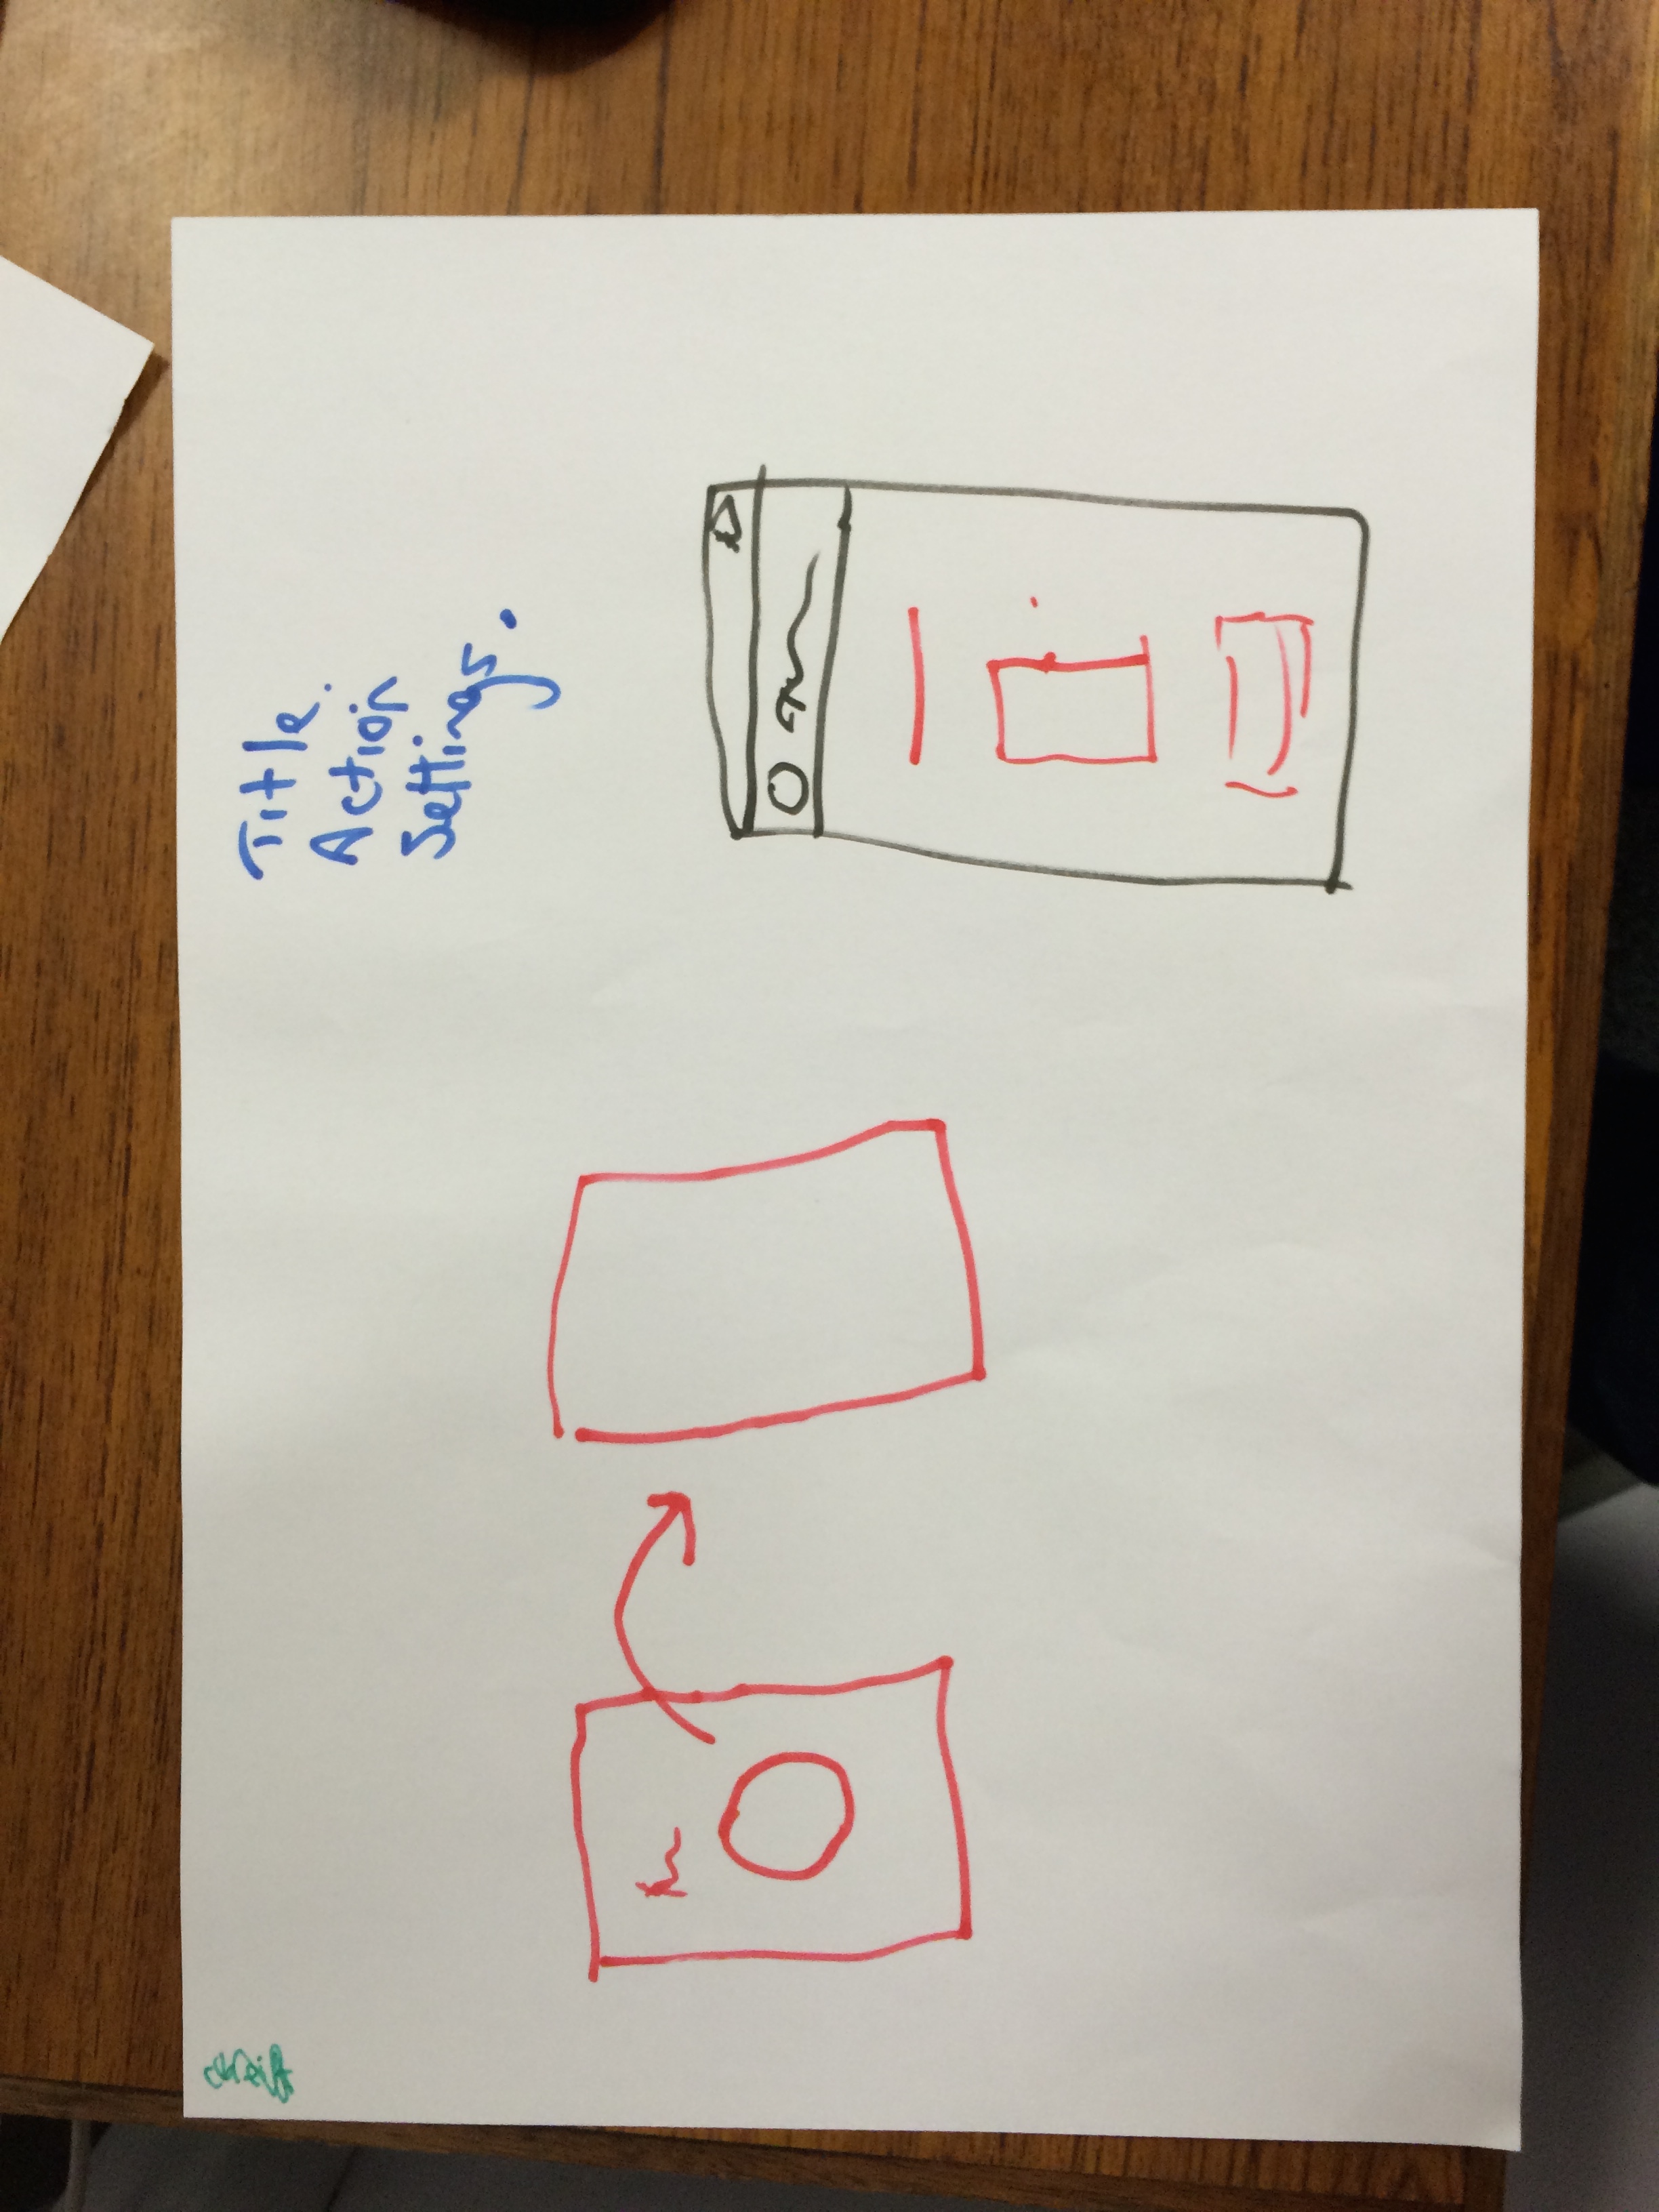 Title.
Action
Settings.